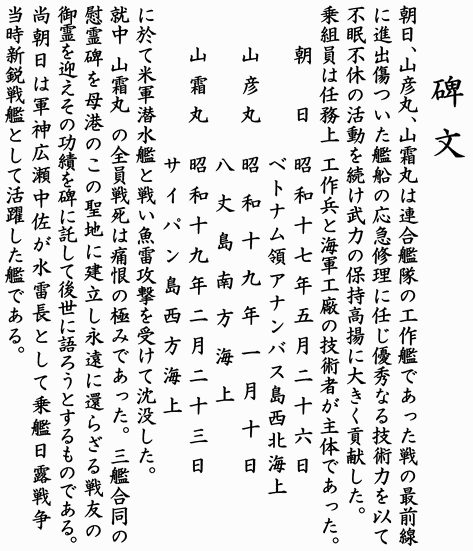 碑文
朝日、山彦丸、山霜丸は連合艦隊の工作艦であった戦の最前線
に進出傷ついた艦船の応急修理に任じ優秀なる技術力を以て
不眠不休の活動を続け武力の保持高揚に大きく貢献した。
乗組員は任務上 工作兵と海軍工廠の技術者が主体であった。
朝日 昭和十七年五月二十六日
ベトナム領アナンバス島西北海上
山彦丸 昭和十九年一月十日
八丈島南方海上
山霜丸 昭和十九年二月二十三日
サイパン島西方海上
に於て米軍潜水艦と戦い魚雷攻撃を受けて沈没した。
就中 山霜丸 の全員戦死は痛恨の極みであった。三艦合同の
慰霊碑を母港のこの聖地に建立し永遠に還らざる戦友の
御霊を迎えその功績を碑に託して後世に語ろうとするものである。
尚朝日は軍神広瀬中佐が水雷長として乗艦日露戦争
当時新鋭戦艦として活躍した艦である。